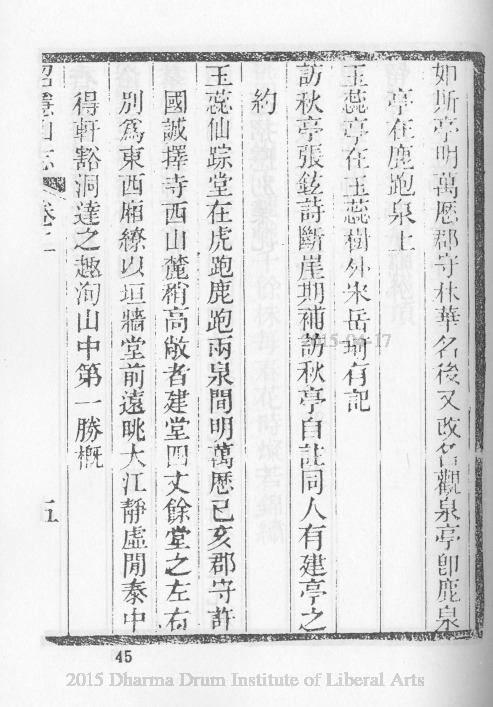 如斯亭明萬厯郡守林華名後又改名觀泉亭卽鹿泉
亭在鹿跑泉上
玉蕊亭在玉蕊樹外米岳珣有記
訪秋亭張鉉詩斷崖期補訪秋亭自註同人有建亭之
約
玉蕊仙踪堂在虎跑鹿跑兩泉間明萬厯己亥郡守許
國誠擇寺西山麓稍高敞者建堂四丈餘堂之左右
別為東西廂繚以垣牆堂前遠眺大江靜虛閒泰中
得軒豁洞達之趣洵山中第一勝概
山志
卷二
五
2015-04-17
45
2015 Dharma Drum Institute of Liberal Arts